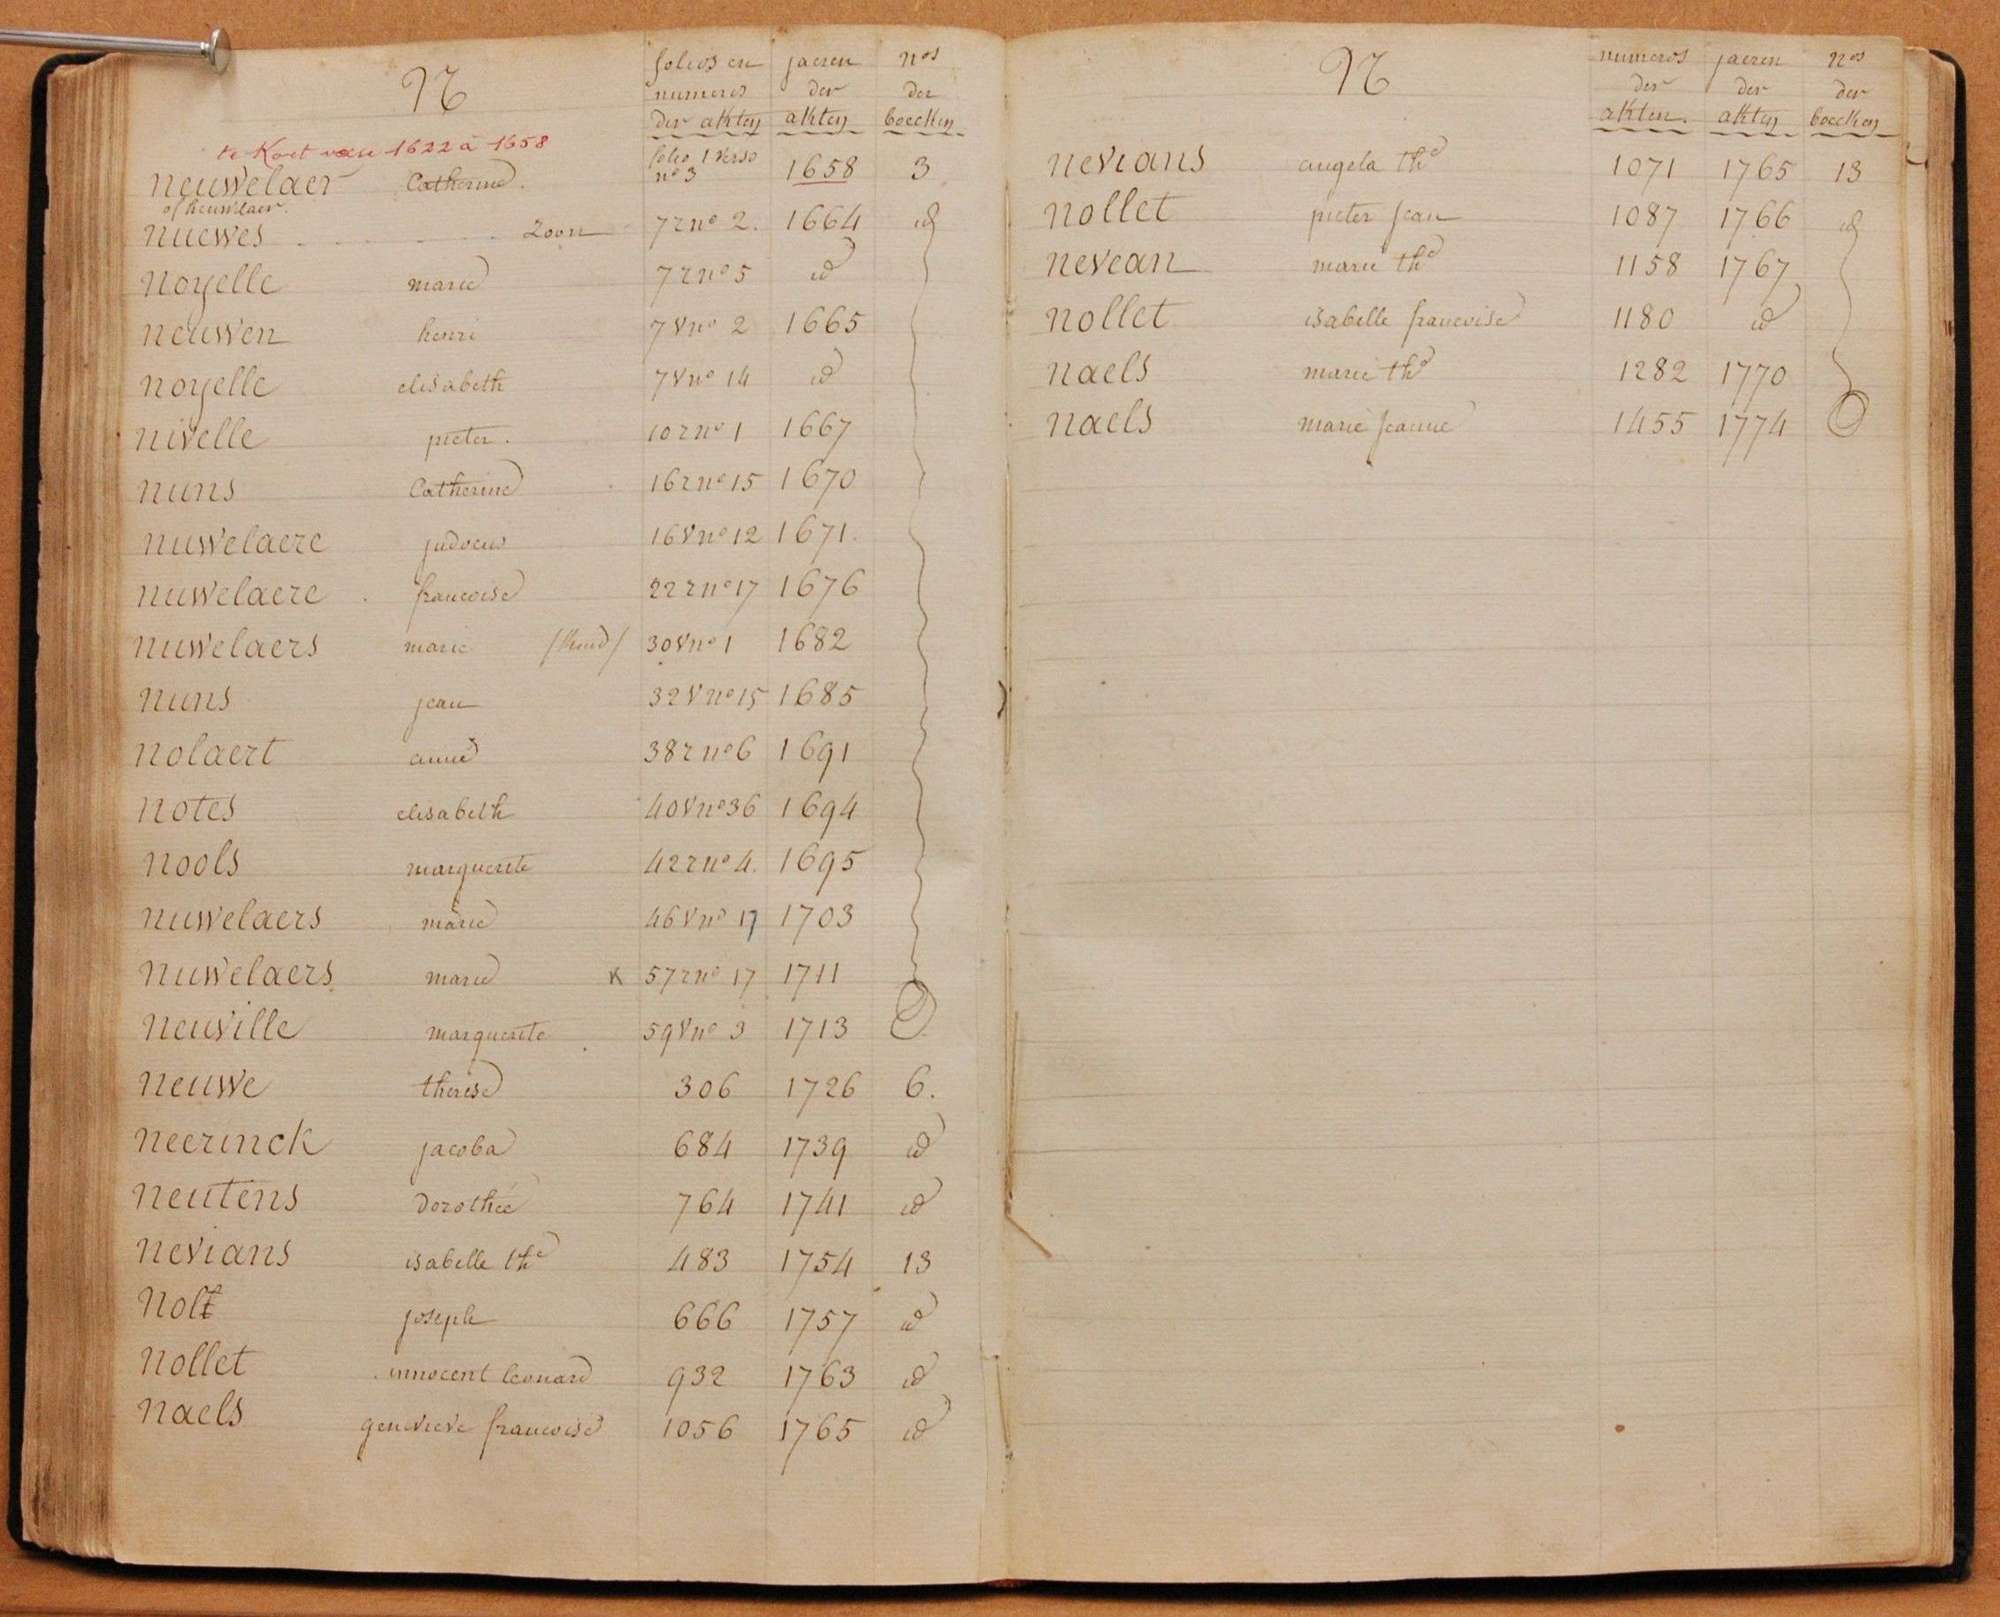 N folios en jaeren nos
numeros der der
der akten akten boecken
te Kort van 1622 à 1658
neuwelaer Catherine. folio 1 verso n° 3 1658 3
of heuwlaer.
nuewes zoon 7 r n° 2. 1664 id
noyelle marie 7 r n° 5 id
neuwen henri 7 v n° 2 1665
noyelle elisabeth 7 v n° 14 id
nivelle pieter. 10 r n° 1 1667
nuns Catherine 16 r n° 15 1670
nuwelaere judocus 16 v n° 12 1671.
nuwelaere francoise 22 r n° 17 1676
nuwelaers marie /kind/ 30 v n° 1 1682
nuns jean 32 v n° 15 1685
nolaert anne 38 r n° 6 1691
notes elisabeth 40 v n° 36 1694
nools marguerite 42 r n° 4. 1695
nuwelaers marie 46 v n° 17 1703
nuwelaers marie K 57 r n° 17 1711
neuville marguerite 59 v n° 3 1713
neuwe therese 306 1726 6.
neerinck jacoba 684 1739 id
neutens dorothée 764 1741 id
nevians isabelle the 483 1754 13
nolf joseph 666 1757 id
nollet innocent leonard 932 1763 id
naels genevieve francoise 1056 1765 id
N numeros jaeren nos
der der der
akten. akten boecken
nevians angela the 1071 1765 13
nollet pieter jean 1087 1766 id
nevean marie the 1158 1767
nollet isabelle francoise 1180 id
naels marie the 1282 1770
naels marie jeanne 1455 1774